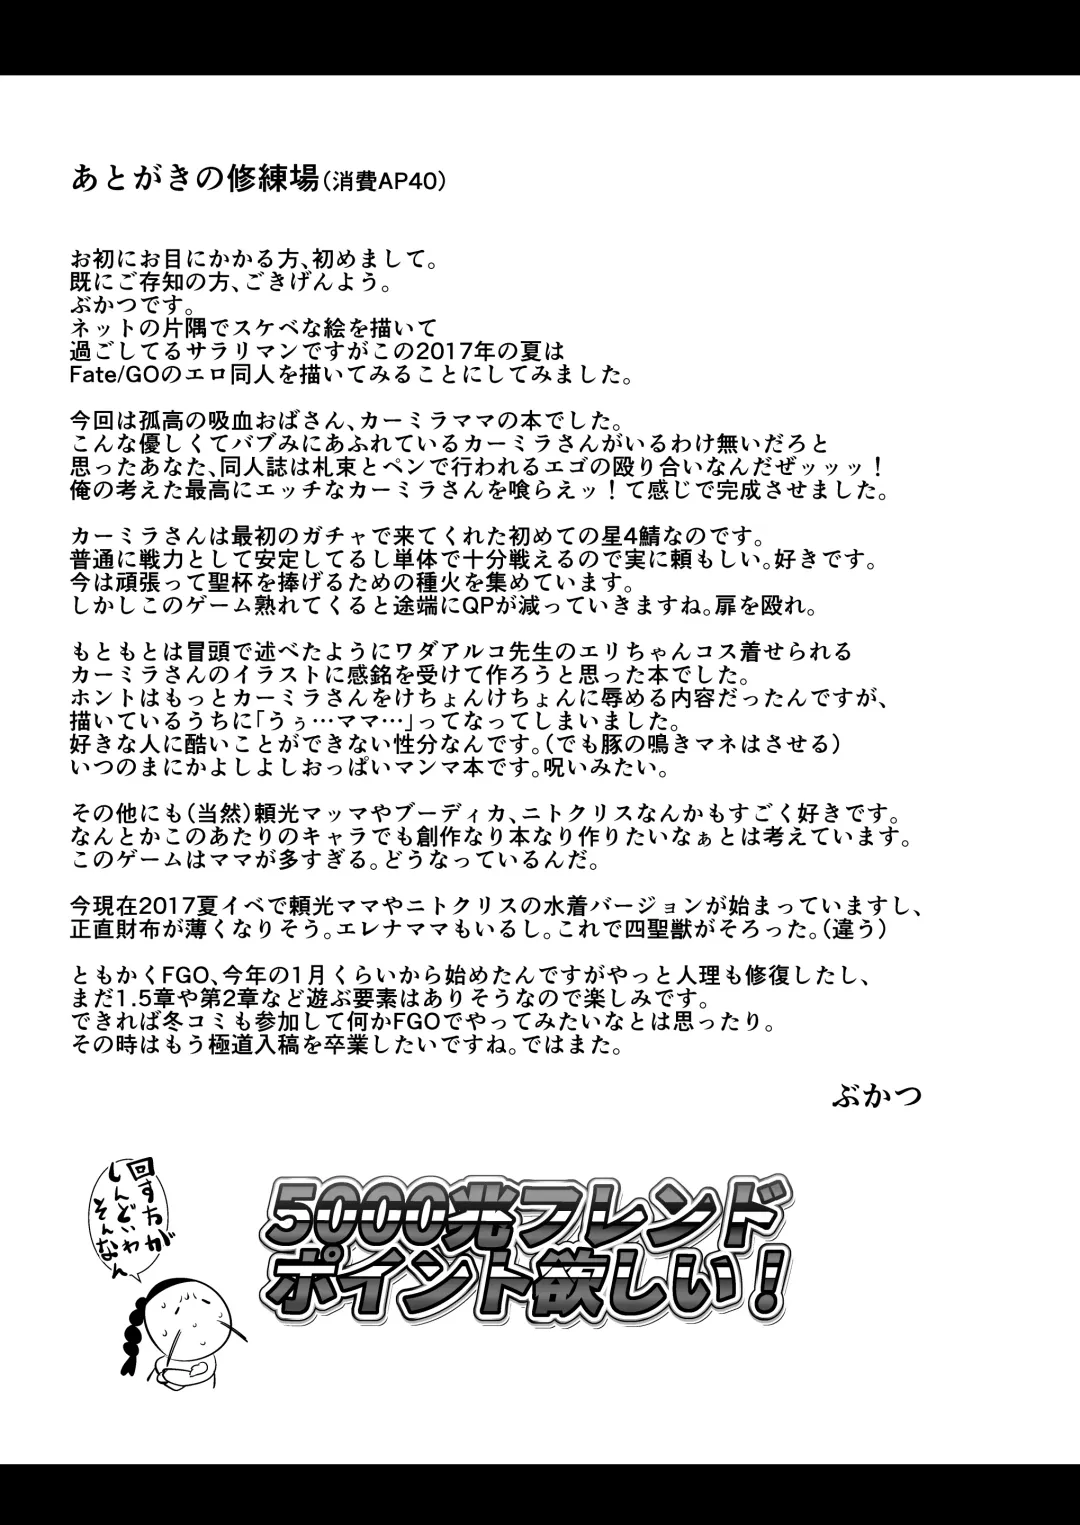 あとがきの修練場(消費AP40)
お初にお目にかかる方、初めまして。
既にご存知の方、ごきげんよう。
ぶかつです。
ネットの片隅でスケベな絵を描いて
過ごしてるサラリマンですがこの2017年の夏は
Fate/GOのエロ同人を描いてみることにしてみました。
今回は孤高の吸血おばさん、カーミラママの本でした。
こんな優しくてバブみにあふれているカーミラさんがいるわけ無いだろと
思ったあなた、同人誌は札束とペンで行われるエゴの殴り合いなんだぜッッッ!
俺の考えた最高にエッチなカーミラさんを喰らえッ!て感じで完成させました。
カーミラさんは最初のガチャで来てくれた初めての星4鯖なのです。
普通に戦力として安定してるし単体で十分戦えるので実に頼もしい。好きです。
今は頑張って聖杯を捧げるための種火を集めています。
しかしこのゲーム熟れてくると途端にQPが減っていきますね。扉を殴れ。
もともとは冒頭で述べたようにワダアルコ先生のエリちゃんコス着せられる
カーミラさんのイラストに感銘を受けて作ろうと思った本でした。
ホントはもっとカーミラさんをけちょんけちょんに辱める内容だったんですが、
描いているうちに「うぅ…ママ…」ってなってしまいました。
好きな人に酷いことができない性分なんです。(でも豚の鳴きマネはさせる)
いつのまにかよしよしおっぱいマンマ本です。呪いみたい。
その他にも(当然)頼光マッマやブーディカ、ニトクリスなんかもすごく好きです。
なんとかこのあたりのキャラでも創作なり本なり作りたいなぁとは考えています。
このゲームはママが多すぎる。どうなっているんだ。
今現在2017夏イベで頼光ママやニトクリスの水着バージョンが始まっていますし、
正直財布が薄くなりそう。エレナママもいるし。これで四聖獣がそろった。(違う)
ともかくFGO、今年の1月くらいから始めたんですがやっと人理も修復したし、
まだ1.5章や第2章など遊ぶ要素はありそうなので楽しみです。
できれば冬コミも参加して何かFGOでやってみたいなとは思ったり。
その時はもう極道入稿を卒業したいですね。ではまた。
ぶかつ
回す方が
しんどいわ
そんなん
5000兆フレンド
ポイント欲しい!